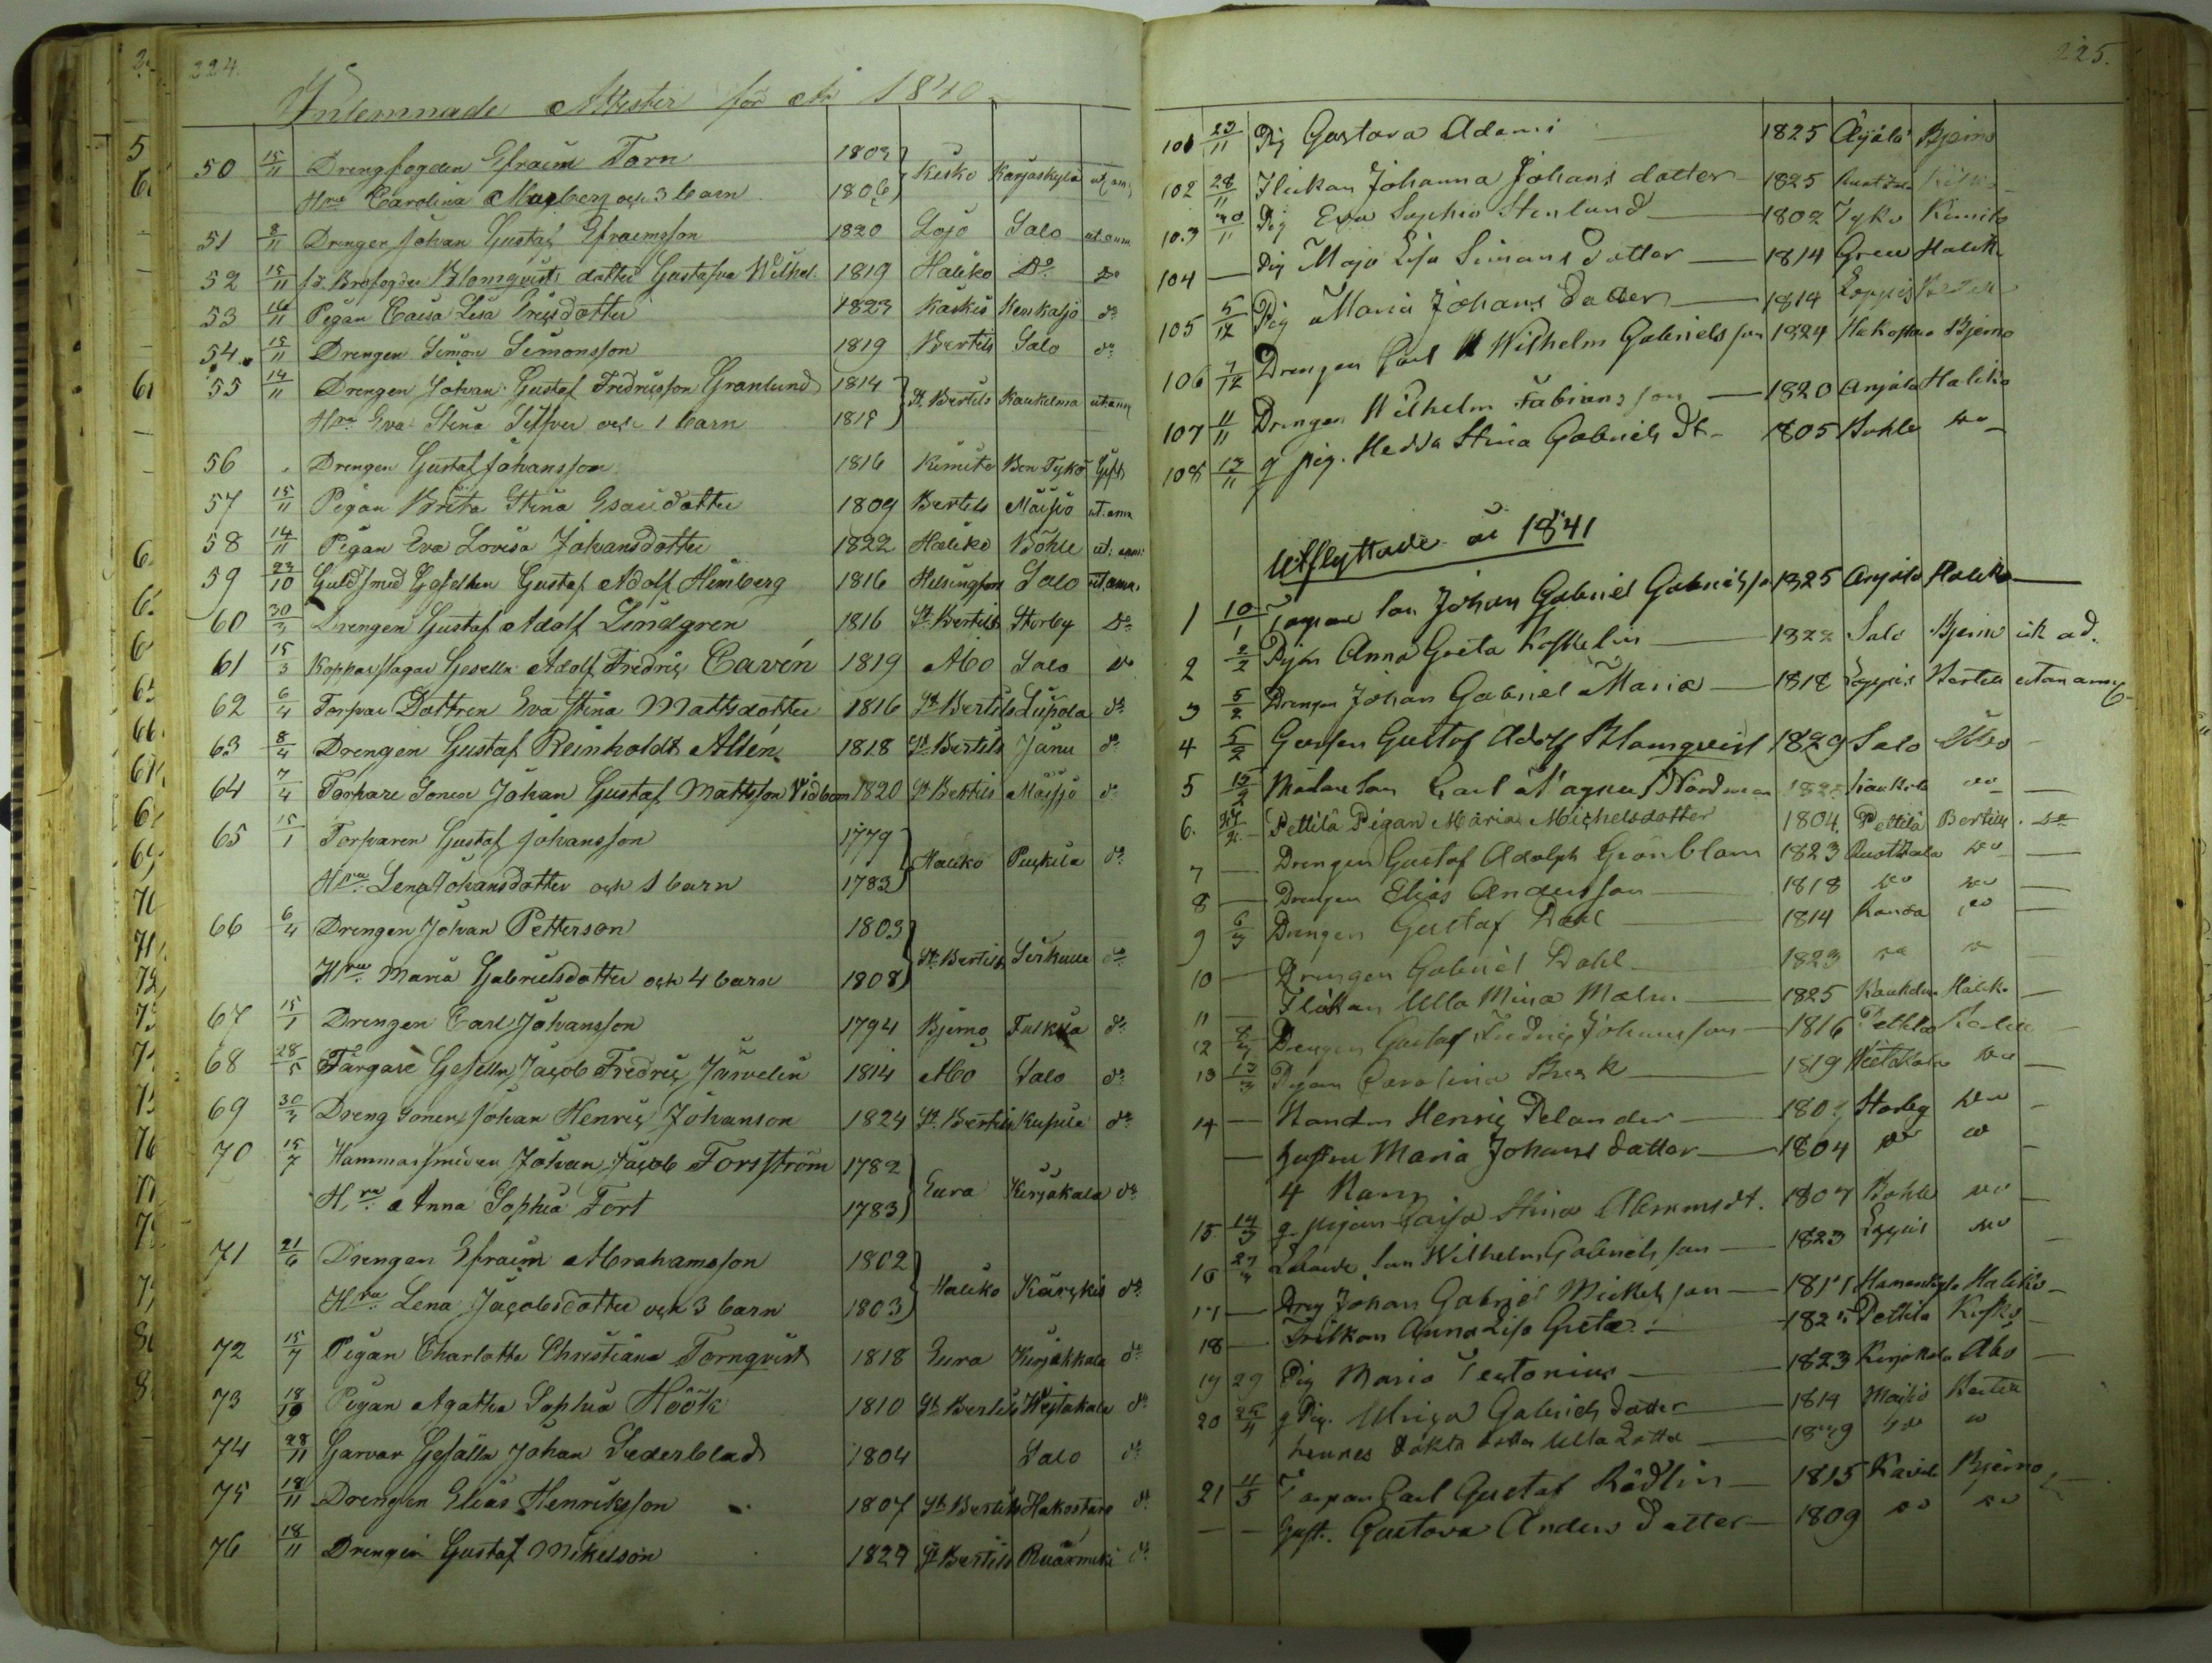 224.
Inlemnade Attester för År 1840
50 15/11 Drengfogden Efraim Torn 1803 Kisko Karjaskylä ut. anm.
Hru Carolina Magberg och 3 barn 1806
51 8/11 Drengen Johan Gustaf Efraimsson 1820 Lojo Salo ut. anm
52 15/11 Blomqvists dotter Gustafva Wilhel. 1819 Haliko Do Do
53 Pigan Caisa Lisa Ersdotter 1823 Kaskis do
54. 15/11 Drengen Simon Simonsson 1819 Bertils Salo do
55 14/11 Drengen Johan Gustaf Fredricsson Granlund 1814 St. Bertils Kaukelma ut. anm
Hru Eva Stina Silfver och 1 barn 1818
56 Drengen Gustaf Johansson 1816 Kimito
57 15/11 Pigan Brita Stina Esaidotter 1809 Bertils Maisjö ut. anm
58 14/11 Pigan Eva Lovisa Johansdotter 1822 Haliko Böhle ut. anm:
59 23/10 Guldsmed Gesellen Gustaf Adolf Himberg 1816 Helsingfors Salo ut. anm.
60 30/3 Drengen Gustaf Adolf Lindgren 1816 St. Bertils Storby Do
61 15/3 Kopparslagar Geselln Adolf Fredric Cavén 1819 Åbo Salo Do
62 6/4 Torpar Dottren Eva Stina Mattsdotter 1816 St. Bertils Lupola do
63 8/4 Drengen Gustaf Reinholdt Alén 1818 St. Bertils Jänu do
64 7/4 Torpare Sonen Johan Gustaf Mattsson Vidbom 1820 St. Bertils Maisjö do
65 15/1 Torparen Gustaf Johansson 1779 Haliko Puskila do
Hru Lena Johansdotter och 1 barn 1783
66 6/4 Drengen Johan Petterson 1803 St. Bertils do
Hru Maria Gabrielsdotter och 4 barn 1808
67 15/1 Drengen Carl Johansson 1794 Bjerno Fulkila do
68 28/5 Färgare Geselln Jacob Fredric Järvelin 1814 Åbo Salo do
69 30/3 Dreng Sonen Johan Henric Johanson 1824 St. Bertils do
70 15/7 Hammarsmeden Johan Jacob Forsström 1782 Eura Kirjakala do
Hru Anna Sophia Fort 1783
71 21/6 Drengen Efraim Abrahamsson 1802 Haliko Kärckis do
Hru Lena Jacobsdotter och 3 barn 1803
72 15/7 Pigan Charlotta Christiana Tornqvist 1818 Eura Kirjakkala do
73 18/10 Pigan Agatha Sophia Höök 1810 St. Bertils do
74 28/11 Garvar Gesälln Johan Sederblad 1804 Salo do
75 18/11 Drengen Elias Henriksson 1807 St. Bertils Hakostaro do
76 18/11 Drengen Gustaf Mikelson 1824 St. Bertils do
225.
101 23/11 Pig Gustava Adami 1825 Äijälä Bjerno
102 28/11 Flickan Johanna Johans dotter 1825 Kisko
103 30/11 Pig Eva Sophia Stenlund 1802 Tyko Kimito
104 — Pig Maja Lisa Simans dotter 1814 Haliko
105 5/12 Pig Maria Johans dotter 1814
106 7/12 Drengen Carl Wilhelm Gabrielsson 1824 Bjerno
107 11/11 Drengen Wilhelm Fabiansson 1820 Anjala Haliko
108 13/11 g pig. Hedda Stina Gabriels dt. 1805 Bohle Do
Utflyttade år 1841
1 10/1 Johan Gabriel Gabrielsson 1825 Anjala Haliko
2 2/2 Pign Anna Greta Koskelin 1822 Salo Bjerno
3 5/2 Drengen Johan Gabriel Maria 1818 Bertils utan anm
4 5/2 Gustaf Adolf Blomqvist 1829 Salo Åbo
5 Carl Magnus Nordman Do
6. Pettilä Pigan Maria Michelsdotter 1804. Pettilä Bertils. Do
7 — Drengen Gustaf Adolph Grönblom 1823 Do
8 — Drengen Elias Andersson 1818 Do Do
9 6/3 Drengen Gustaf Dahl 1814 Do
10 — Drengen Gabriel Dahl 1823 Do Do
11 — Flickan Ulla Mina Malm 1825 Haliko
12 Drengen Gustaf Fredric Johansson 1816 Pettila
13 13/3 Pigan Carolina Busk 1819 Do
14 — Henric Delander Storby Do
— Hustru Maria Johans dotter 1804 Do Do
4 Barn
15 14/3 g. pigan Caisa Stina 1807 Bohle Do
16 Wilhelm Gabrielsson 1823 Do
17 — Dreng Johan Gabriel Mickelsson 1811 Haliko
18 — Anna Lisa Greta Pettila Kisko
19 29 Pig Maria Textorius 1823 Kirjakala Åbo
20 g Pig. Ulrica Gabriels dotter 1814
hennes oäkta dotter Ulla Lotta Do Do
21 11/5 Torparn Carl Gustaf Rådlin 1815 Bjerno
— — Hust. Gustava Anders dotter 1809 Do Do